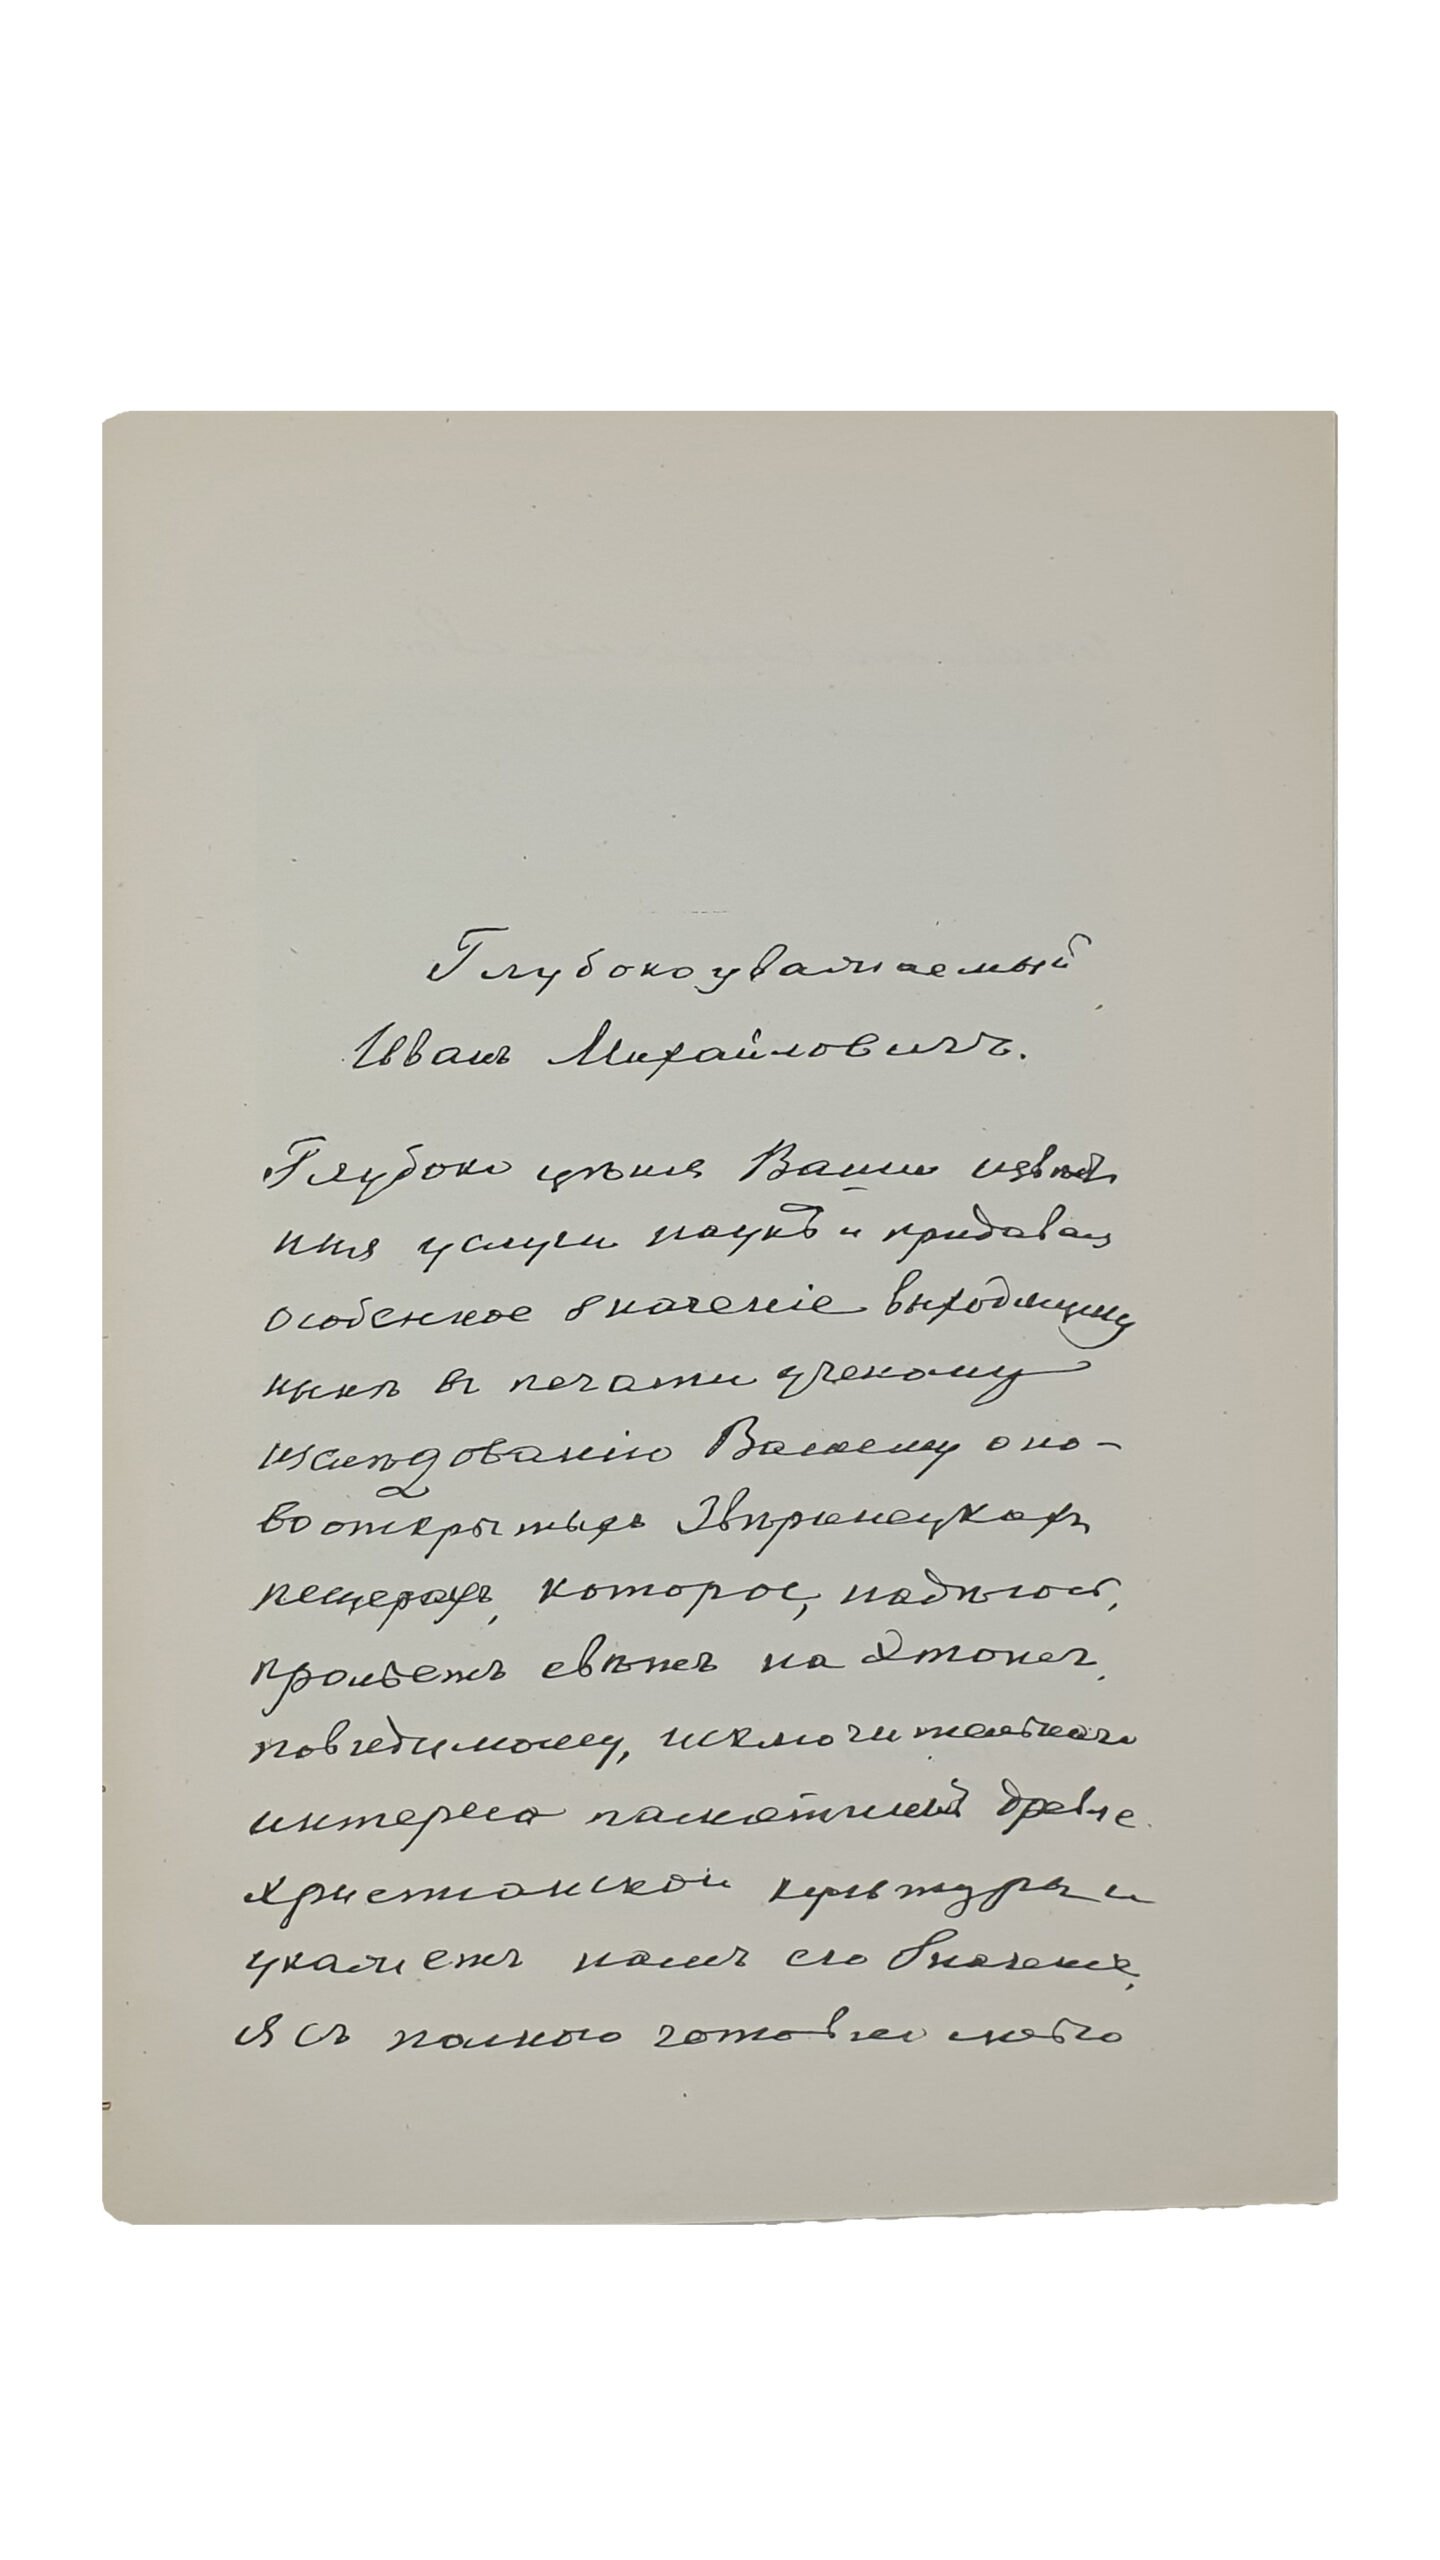 Глубокоуважаемый
Иванъ Михайловичъ.
Глубоко цѣня Ваши извѣст
ныя услуги наукѣ и придавая
особенное значеніе выходящему
нынѣ въ печати ученому
изслѣдованію Вашему о но-
вооткрытыхъ Звѣринецкихъ
пещерахъ, которое, надѣюсь,
прольетъ свѣтъ на этотъ,
повидимому, исключительнаго
интереса памятникъ древне
христианской культуры и
укажетъ намъ его значеніе,
я съ полною готовностью